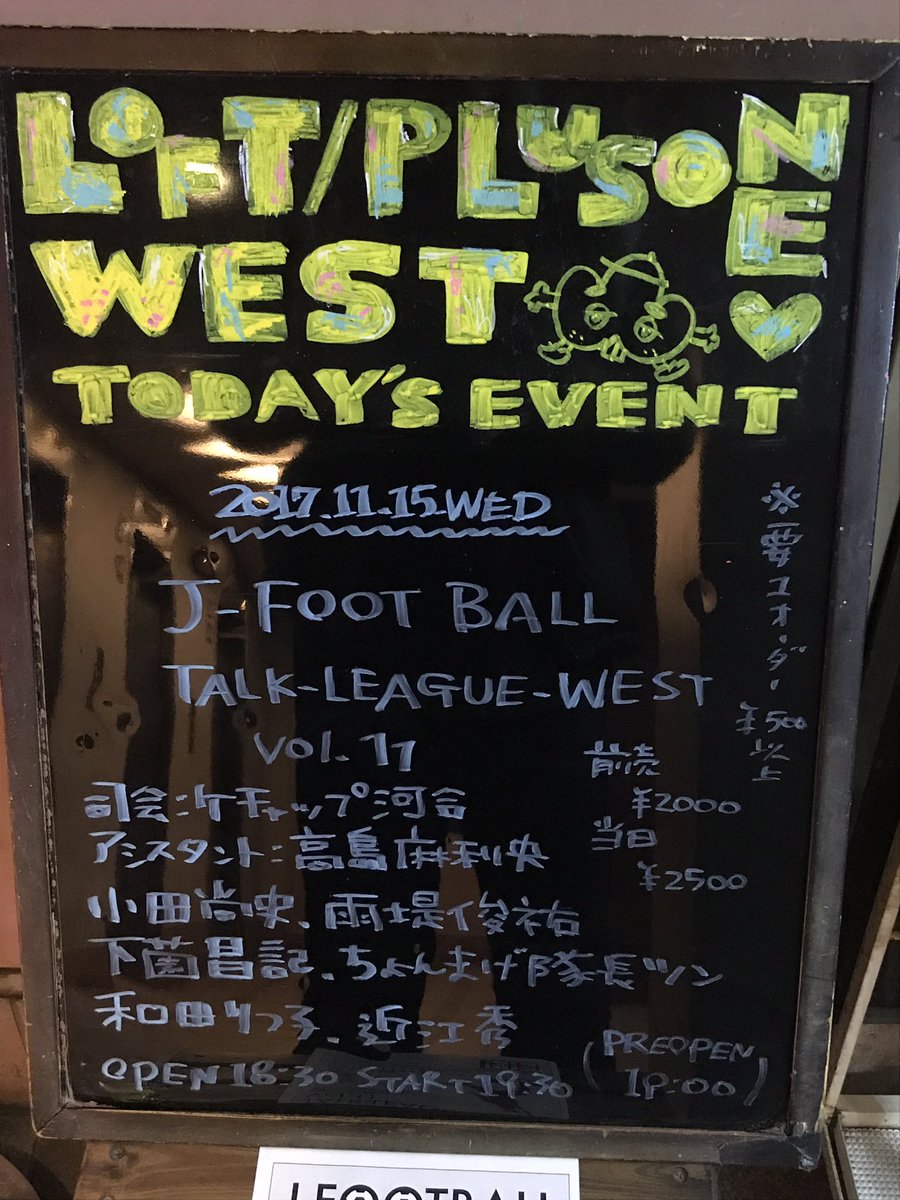 LOFT/PLUSONE
WEST
TODAY'S EVENT
2017.11.15.WED
J-FOOT BALL
TALK-LEAGUE-WEST
VOL.11
前売
¥2000
当日
¥2500
※要1オーダー¥500以上
司会:ケチャップ河合
アシスタント:高島麻利央
小田尚史、雨堤俊祐
下薗昌記、ちょんまげ隊長ツン
和田りつ子、近江秀
OPEN 18:30 START 19:30 (PREOPEN 18:00)